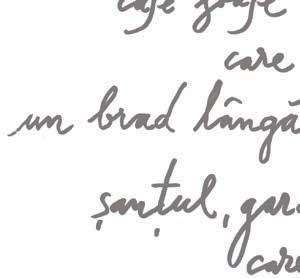 care
un brad lângă
șanțul, gar
care